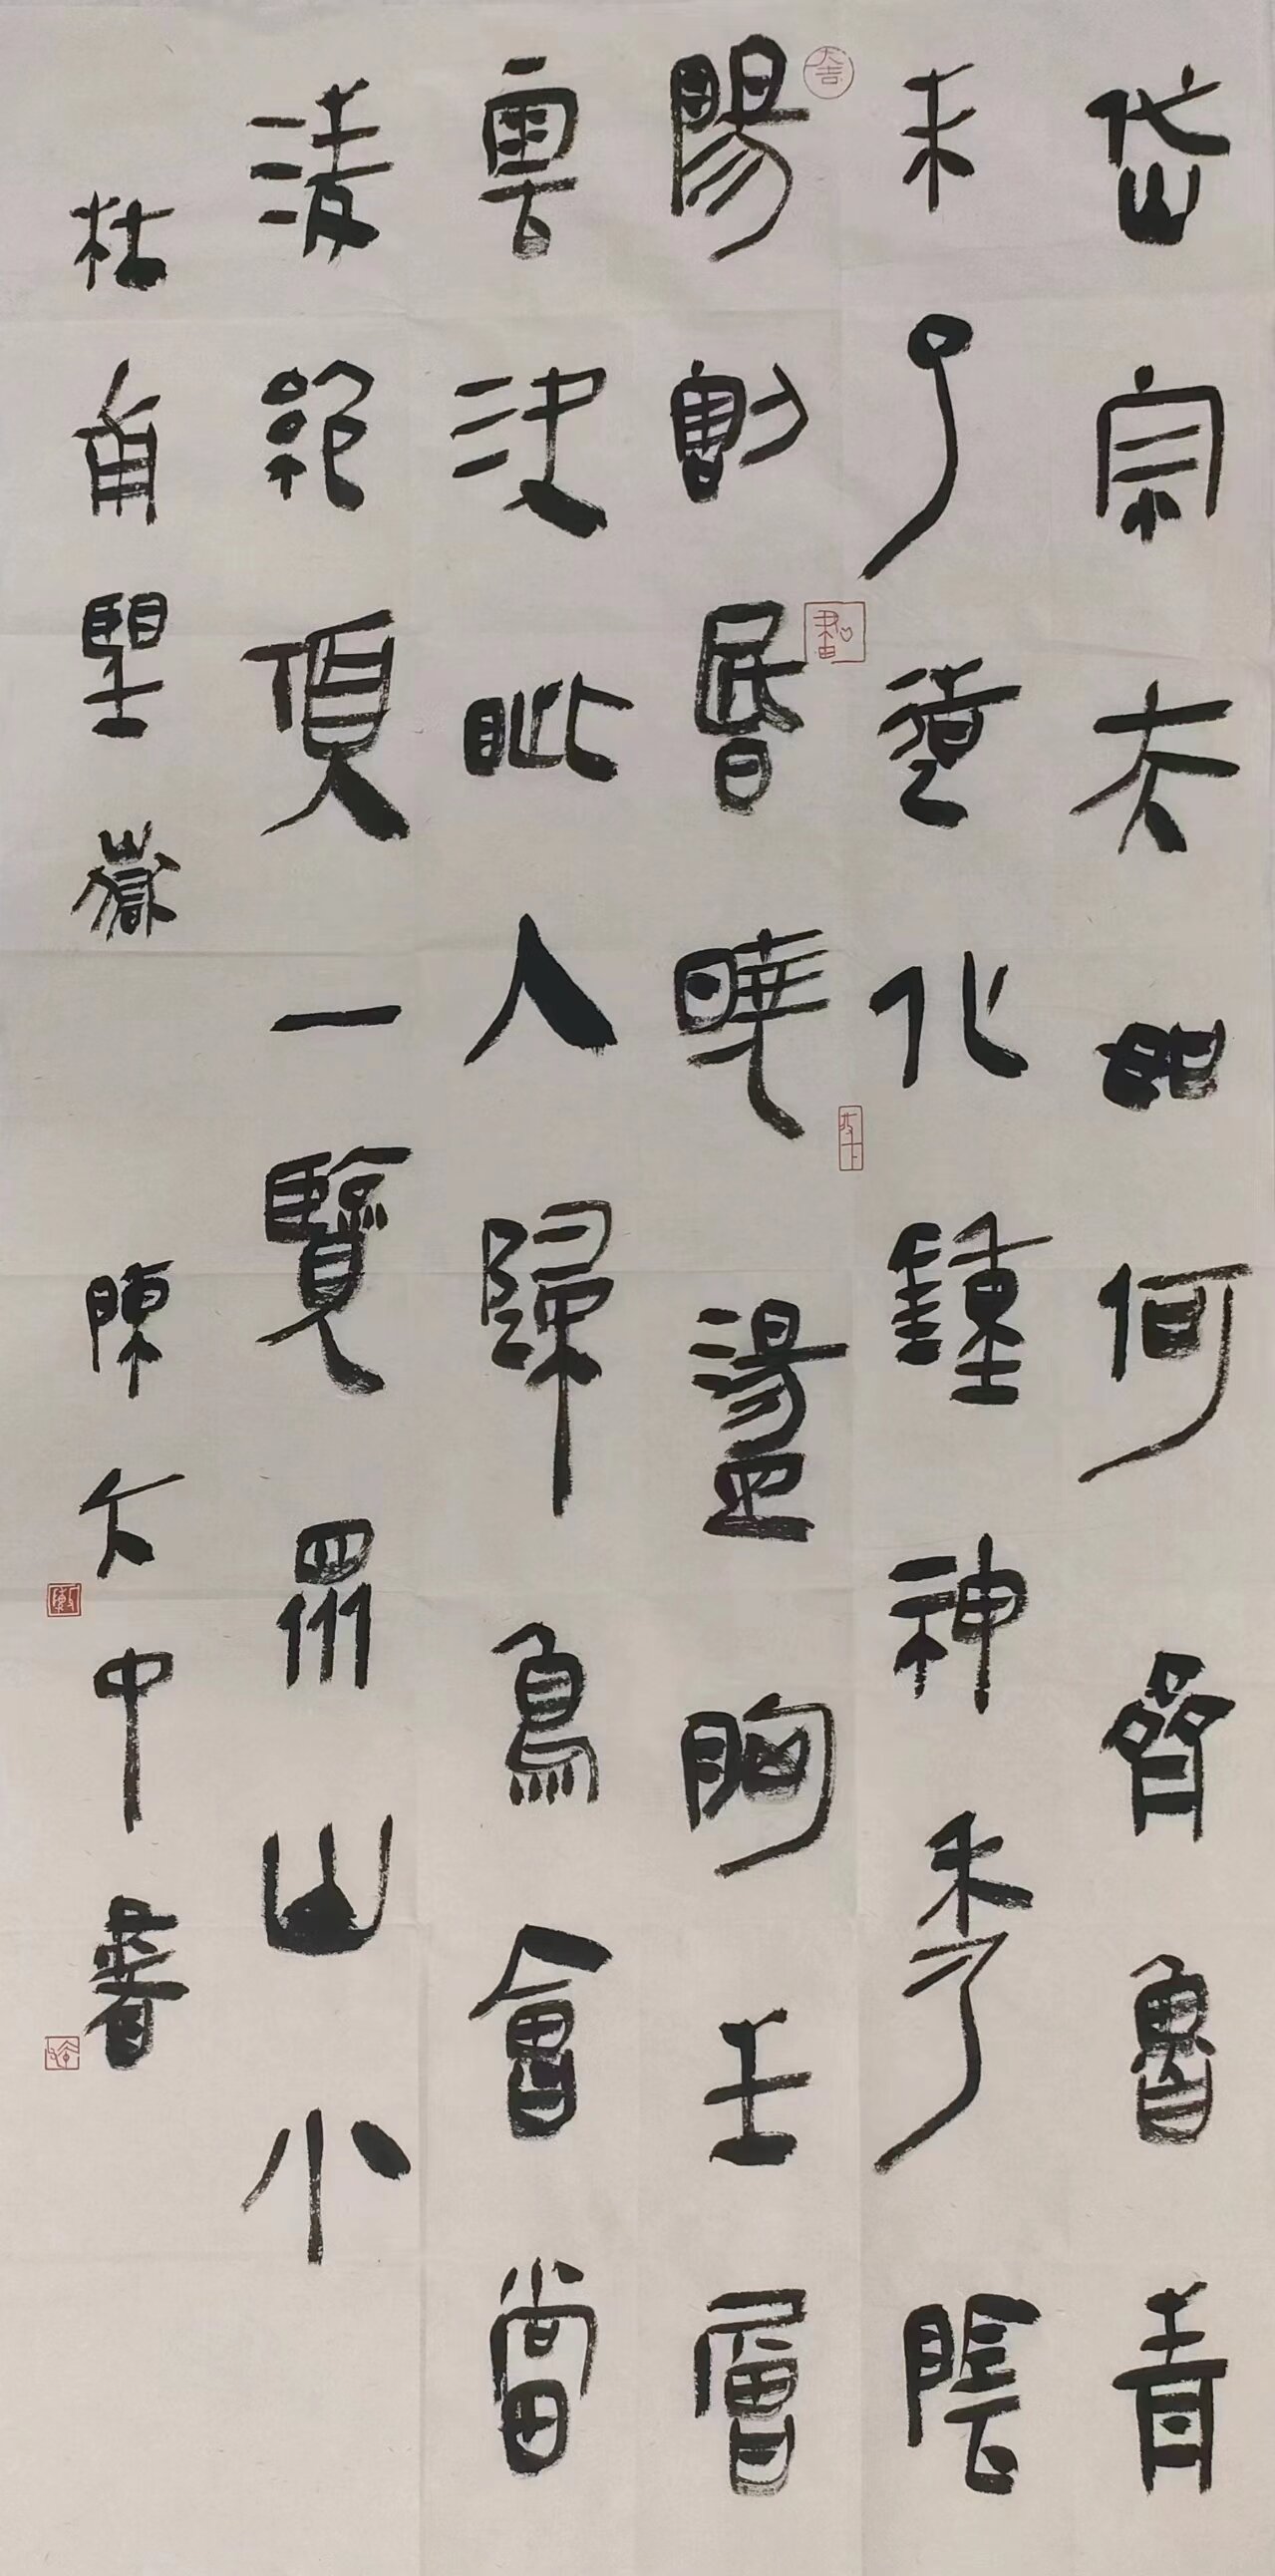 岱宗夫如何齊魯青
未了造化鍾神秀陰
陽割昏曉盪胸生層
雲決眥入歸鳥會當
淩絕頂一覽眾山小
杜甫望嶽 陳文中書
大吉